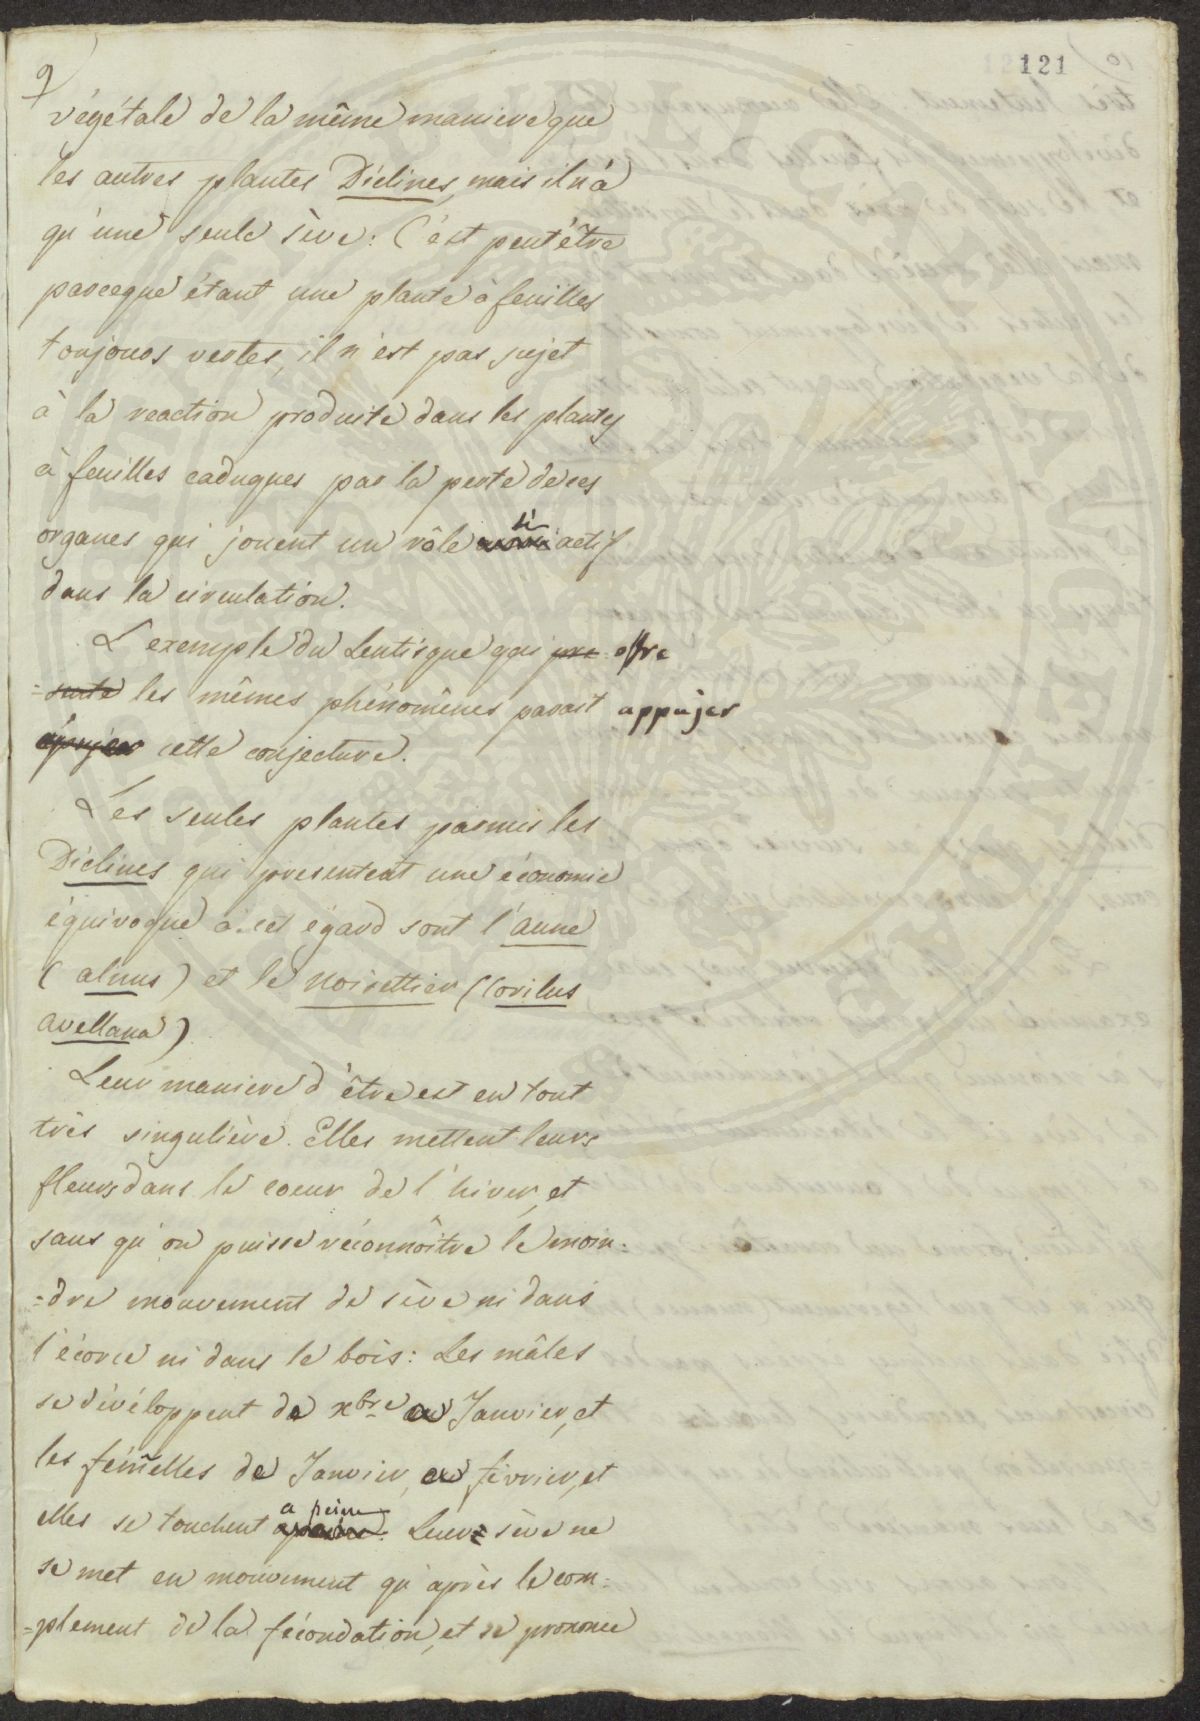 9
121
végétale de la même maniere que
les autres plantes Diclines, mais il n'a
qu'une seule sève: C'est peut'être
parceque étant une plante à feuilles
toujours vertes, il n'est pas sujet
à la reaction produite dans les plantes
à feuilles caduques par la perte de ces
organes qui jouent un rôle si actif
dans la circulation.
L'exemple du Lentisque qui pre offre
=sente les mêmes phénomênes parait appujer
appujer cette conjecture.
Les seules plantes parmis les
Diclines qui presentent une économie
équivoque à cet égard sont l'aune
(alnus) et le noisettier (Corilus
avellana)
Leur maniere d'être est en tout
très singulière. Elles mettent leurs
fleurs dans le coeur de l'hiver, et
sans qu'on puisse réconnôitre le moin=
=dre mouvement de sève ni dans
l'écorce ni dans le bois: Les mâles
se dévéloppent de xbre a Janvier, et
les fémelles de Janvier, a février, et
elles se touchent a peine. Leur sève ne
se met en mouvement qu'après le com=
=plement de la fécondation, et se prononce